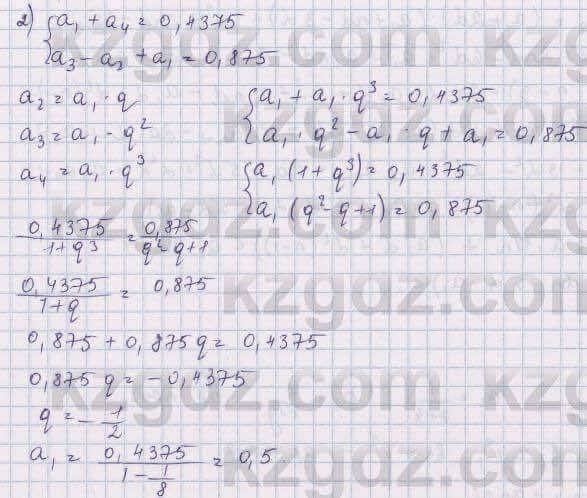 2) { a₁ + a₄ = 0,4375
a₃ - a₂ + a₁ = 0,875
a₂ = a₁ · q
a₃ = a₁ · q²
a₄ = a₁ · q³
{ a₁ + a₁ · q³ = 0,4375
a₁ · q² - a₁ · q + a₁ = 0,875
{ a₁ (1 + q³) = 0,4375
a₁ (q² - q + 1) = 0,875
0,4375 / 1 + q³ = 0,875 / q² - q + 1
0,4375 / 1 + q = 0,875
0,875 + 0,875 q = 0,4375
0,875 q = - 0,4375
q = - 1/2
a₁ = 0,4375 / 1 - 1/8 = 0,5
kzgdz.com
kzgdz.com
kzgdz.com
kzgdz.com
kzgdz.com